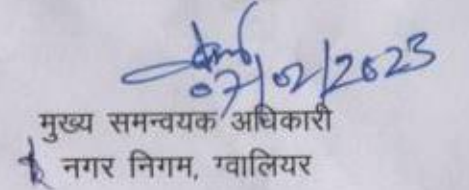 07/02/2023
मुख्य समन्वयक अधिकारी
नगर निगम, ग्वालियर